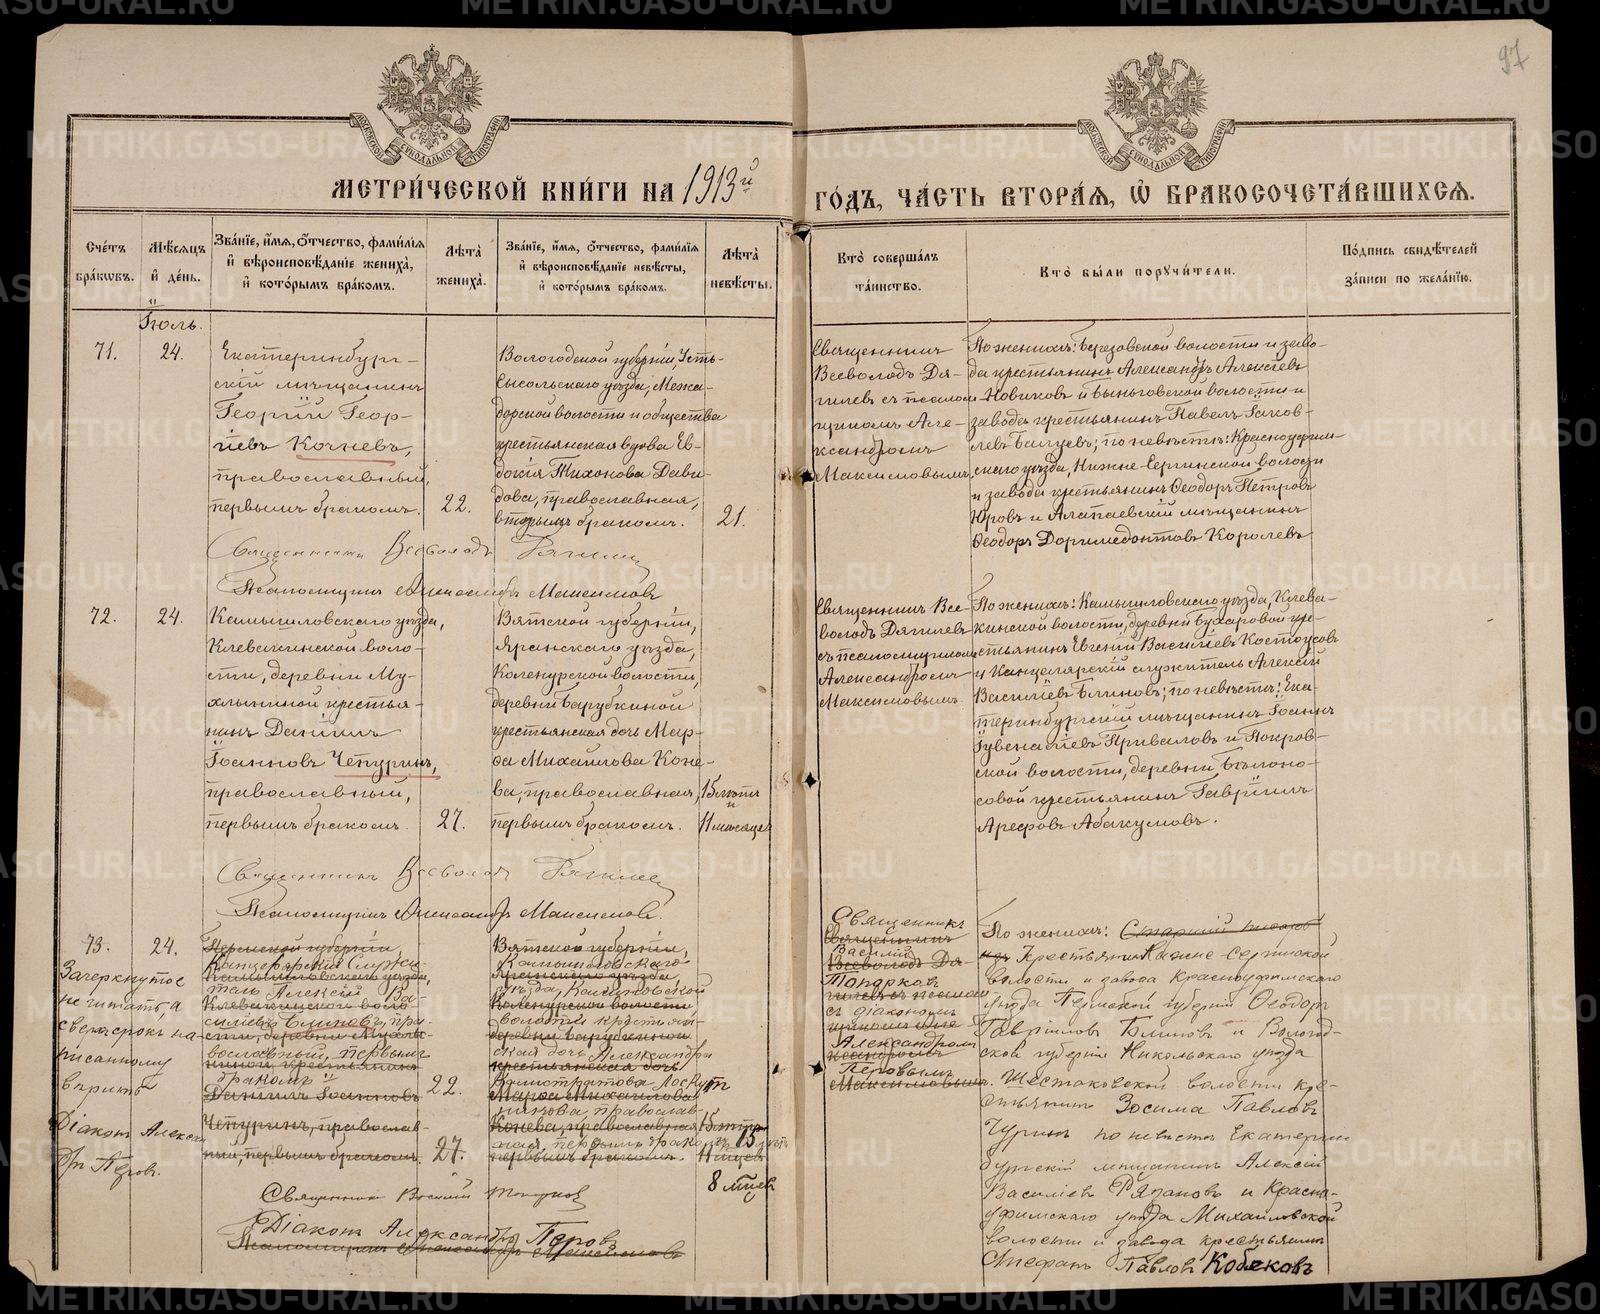 97
МЕТРИ́ЧЕСКОЙ КНИ́ГИ НА 1913й ГО́ДЪ, ЧА́СТЬ ВТОРА́Я, Ѡ҆ БРАКОСОЧЕТА́ВШИХСѦ.
Сче́тъ бра́ковъ.
Мѣ́сяцъ и҆ де́нь.
Зва́нїе, и҆́мя, ѻ҆́тчество, фами́лїя и҆ вѣроисповѣ́данїе жениха̀, и҆ кото́рымъ бра́комъ.
Лѣ́та жениха̀.
Зва́нїе, и҆́мя, ѻ҆́тчество, фами́лїя и҆ вѣроисповѣ́данїе невѣ́сты, и҆ кото́рымъ бра́комъ.
Лѣ́та невѣ́сты.
Кто̀ соверша́лъ та́инство.
Кто̀ бы́ли поручи́тели.
По́дпись свидѣ́телей за́писи по жела́нїю.
Іюль.
71.
24.
Екатеринбург-
скій мѣщанинъ
Георгій Геор-
гіевъ Кочневъ,
православный,
первымъ бракомъ.
22.
Вологодской губерніи, Усть-
сысольскаго уѣзда, Межа-
дорской волости и общества
крестьянская вдова Ев-
докія Тихонова Дави-
дова, православная,
вторымъ бракомъ.
21.
Священникъ
Всеволодъ Дя-
гилевъ съ псалом-
щикомъ Але-
ксандромъ
Максимовымъ.
По женихѣ: Березовской волости и заво-
да крестьянинъ Александръ Алексѣевъ
Новиковъ и Быньговской волости и
завода крестьянинъ Павелъ Іаков-
левъ Балуевъ; по невѣстѣ: Красноуфим-
скаго уѣзда, Нижне-Сергинской волости
и завода крестьянинъ Ѳеодоръ Петровъ
Юровъ и Алапаевскій мѣщанинъ
Ѳеодоръ Доримедонтовъ Королевъ
Священникъ Всеволодъ Дягилевъ
Псаломщикъ Александръ Максимовъ
72.
24.
Камышловскаго уѣзда,
Клевакинской воло-
сти, деревни Му-
хлыниной крестья-
нинъ Даніилъ
Іоанновъ Чепуринъ,
православный,
первымъ бракомъ.
27.
Вятской губерніи,
Яранскаго уѣзда,
Коленурской волости,
деревни Барубкиной
крестьянская дочь Мар-
ѳа Михаилова Коне-
ва, православная,
первымъ бракомъ.
15 лѣтъ
и
11 мѣсяцевъ
Священникъ Все-
володъ Дягилевъ
съ псаломщикомъ
Александромъ
Максимовымъ.
По женихѣ: Камышловскаго уѣзда, Клева-
кинской волости, деревни Бухаровой кре-
стьянинъ Евгеній Василіевъ Костоусовъ
и Канцелярскій служитель Алексій
Василіевъ Блиновъ; по невѣстѣ: Ека-
теринбургскій мѣщанинъ Іоаннъ
Іувеналіевъ Приваловъ и Покров-
ской волости, деревни Бѣлоно-
совой крестьянинъ Гавріилъ
Ареѳовъ Абакумовъ.
Священникъ Всеволодъ Дягилевъ
Псаломщикъ Александръ Максимовъ.
73.
24.
Зачеркнутое
не читать, а
сверхъ строкъ на-
писанному
вѣрить
Діаконъ Алексан
дръ Перовъ.
Пермской губерніи,
Канцелярскій Служи-
Камышловскаго уѣзда,
тель Алексій Ва-
Клевакинской воло-
силіевъ Блиновъ, пра-
сти, деревни Мухлы-
вославный, первымъ
ниной, крестьянинъ
бракомъ
Даніилъ Іоанновъ
Чепуринъ, православ-
ный, первымъ бракомъ.
22.
27.
Вятской губерніи,
Камышловскаго
Яранскаго уѣзда
уѣзда,
Коленурской волости,
волости крестьян-
деревни Барубкиной
ская дочь Александра
крестьянская дочь
Калистратова Лоскут
Марѳа Михаилова
никова, православ-
Конева, православная
ная, первымъ бракомъ
первымъ бракомъ.
15 лѣтъ
11 мѣсяцевъ
15 лѣтъ
8 мѣсяцевъ
Священникъ
Священникъ
Василій
Всеволодъ Дя-
Топорковъ
гилевъ съ псалом
съ діакономъ
щикомъ Але-
Александромъ
ксандромъ
Перовымъ
Максимовымъ.
По женихѣ:
Крестьянинъ Нижне-Сергинской
волости и завода Красноуфимскаго
уѣзда Пермской губерніи Ѳеодоръ
Гавріиловъ Блиновъ и Вологод-
ской губерніи Никольскаго уѣзда
Шестаковской волости кре-
стьянинъ Зосима Павловъ
Чуринъ по невѣстѣ Екатерин
бургскій мѣщанинъ Алексій
Василіевъ Рязановъ и Красно-
уфимскаго уѣзда Михайловской
волости и завода крестьянинъ
Стефанъ Павловъ Кобяковъ
Священникъ Василій Топорковъ
Діаконъ Александръ Перовъ
Псаломщикъ Александръ Максимовъ
METRIKI.GASO-URAL.RU